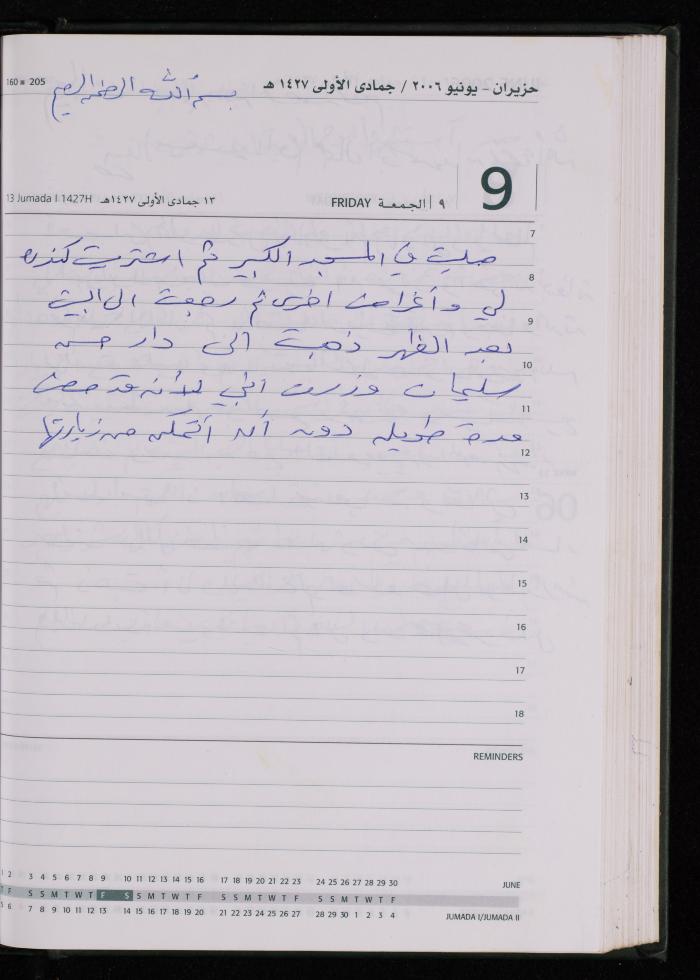 حزيران - يونيو ٢٠٠٦ / جمادى الأولى ١٤٢٧ هـ
160 205
بسم الله الرحمن الرحيم
9
٩ الجمعة FRIDAY
١٣ جمادى الأولى ١٤٢٧هـ 13 Jumada I 1427H
7
صليت في المسجد الكبير ثم اشتريت كندره
8
لي وأغراض اخرى ثم رجعت الى البيت
9
بعد الظهر ذهبت الى دار حسن
10
سليمان وزرت اختي لأنه قد مضت
11
مدة طويله دون أن أتمكن من زيارتها
12
13
14
15
16
17
18
REMINDERS
1 2 3 4 5 6 7 8 9 10 11 12 13 14 15 16 17 18 19 20 21 22 23 24 25 26 27 28 29 30 JUNE
T F S S M T W T F S S M T W T F S S M T W T F S S M T W T F
5 6 7 8 9 10 11 12 13 14 15 16 17 18 19 20 21 22 23 24 25 26 27 28 29 30 1 2 3 4 JUMADA I/JUMADA II